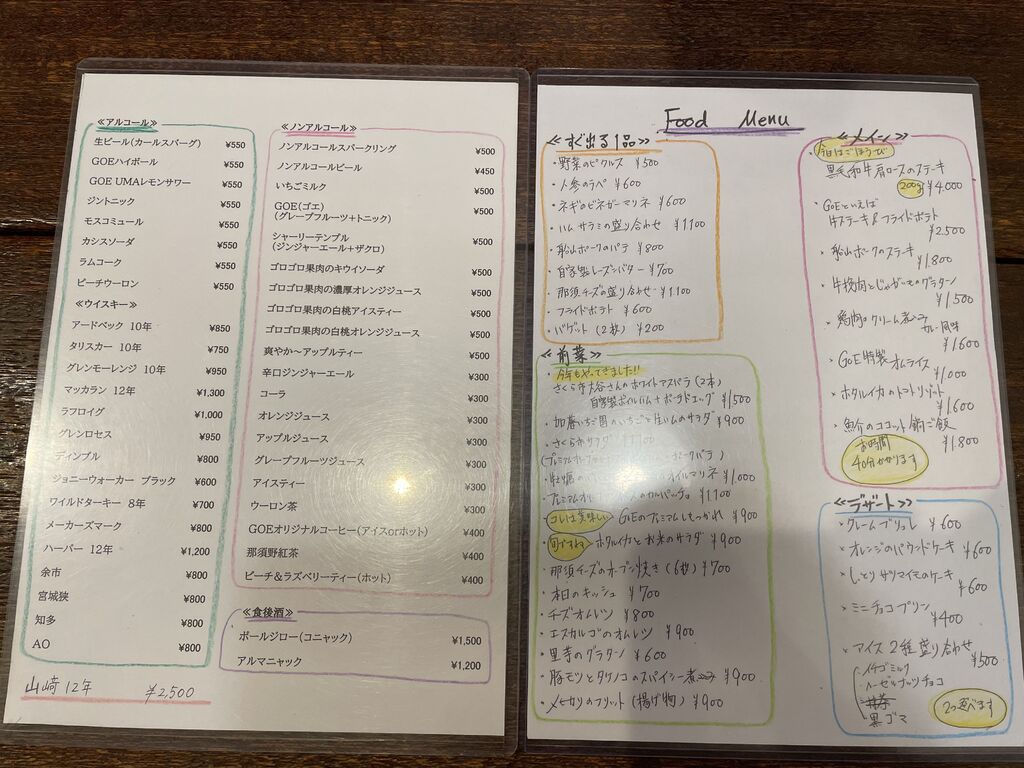 ≪アルコール≫
生ビール(カールスバーグ) ¥550
GOEハイボール ¥550
GOE UMAレモンサワー ¥550
ジントニック ¥550
モスコミュール ¥550
カシスソーダ ¥550
ラムコーク ¥550
ピーチウーロン ¥550
≪ウイスキー≫
アードベック 10年 ¥850
タリスカー 10年 ¥750
グレンモーレンジ 10年 ¥950
マッカラン 12年 ¥1,300
ラフロイグ ¥1,000
グレンロセス ¥950
ディンプル ¥800
ジョニーウォーカー ブラック ¥600
ワイルドターキー 8年 ¥700
メーカーズマーク ¥800
ハーパー 12年 ¥1,200
余市 ¥800
宮城狭 ¥800
知多 ¥800
AO ¥800
山崎 12年 ¥2,500
≪ノンアルコール≫
ノンアルコールスパークリング ¥500
ノンアルコールビール ¥450
いちごミルク ¥500
GOE(ゴエ)
(グレープフルーツ+トニック) ¥500
シャーリーテンプル
(ジンジャーエール+ザクロ) ¥500
ゴロゴロ果肉のキウイソーダ ¥500
ゴロゴロ果肉の濃厚オレンジジュース ¥500
ゴロゴロ果肉の白桃アイスティー ¥500
ゴロゴロ果肉の白桃オレンジジュース ¥500
爽やか～アップルティー ¥500
辛口ジンジャーエール ¥300
コーラ ¥300
オレンジジュース ¥300
アップルジュース ¥300
グレープフルーツジュース ¥300
アイスティー ¥300
ウーロン茶 ¥300
GOEオリジナルコーヒー(アイスorホット) ¥400
那須野紅茶 ¥400
ピーチ＆ラズベリーティー(ホット) ¥400
≪食後酒≫
ポールジロー(コニャック) ¥1,500
アルマニャック ¥1,200
Food Menu
≪すぐ出る1品≫
・野菜のピクルス ¥500
・人参のラペ ¥600
・ネギのビネガーマリネ ¥600
・ハム サラミの盛り合わせ ¥1100
・船山ポークのパテ ¥800
・自家製レーズンバター ¥700
・那須チーズの盛り合わせ ¥1,100
・フライドポテト ¥600
・バゲット (2枚) ¥200
≪前菜≫
・今年もやってきました!!
さくら市大谷さんのホワイトアスパラ (2本)
自家製ボイルハム+ポーチドエッグ ¥1,500
・加藤いちご園のいちごと生ハムのサラダ ¥900
・さくらサラダ
ポークパテ)
オイルマリネ ¥1,000
・プレミアム カルパッチョ ¥1,100
・コレは美味しい GOEのプレミアムしもつかれ ¥900
・旬ですね ホタルイカとお米のサラダ ¥900
・那須チーズのオーブン焼き (6枚) ¥700
・本日のキッシュ ¥700
・チズオムレツ ¥800
・エスカルゴのオムレツ ¥900
・里芋のグラタン ¥600
・豚モツとタケノコのスパイシー煮込み ¥900
・メヒカリのフリット (揚げ物) ¥900
≪メイン≫
・今日はごほうび
黒毛和牛肩ロースのステーキ
200g ¥4,000
・GOEといえば
牛ステーキ&フライドポテト
¥2,500
・船山ポークのステーキ
¥1,800
・牛挽肉とじゃがいものグラタン
¥1,500
・鶏肉のクリーム煮込み
カレー風味
¥1,600
・GOE特製オムライス
¥1,000
・ホタルイカのトマトリゾット
¥1,600
・魚介のココット鍋ご飯
¥1,800
お時間
40分かかります
≪デザート≫
・クレームブリュレ ¥600
・オレンジのパウンドケーキ ¥600
・しっとりサツマイモのケーキ
¥600
・ミニチョコプリン
¥400
・アイス 2種盛り合わせ
¥500
イチゴミルク
ヘーゼルナッツチョコ
抹茶
黒ゴマ
2つ選べます